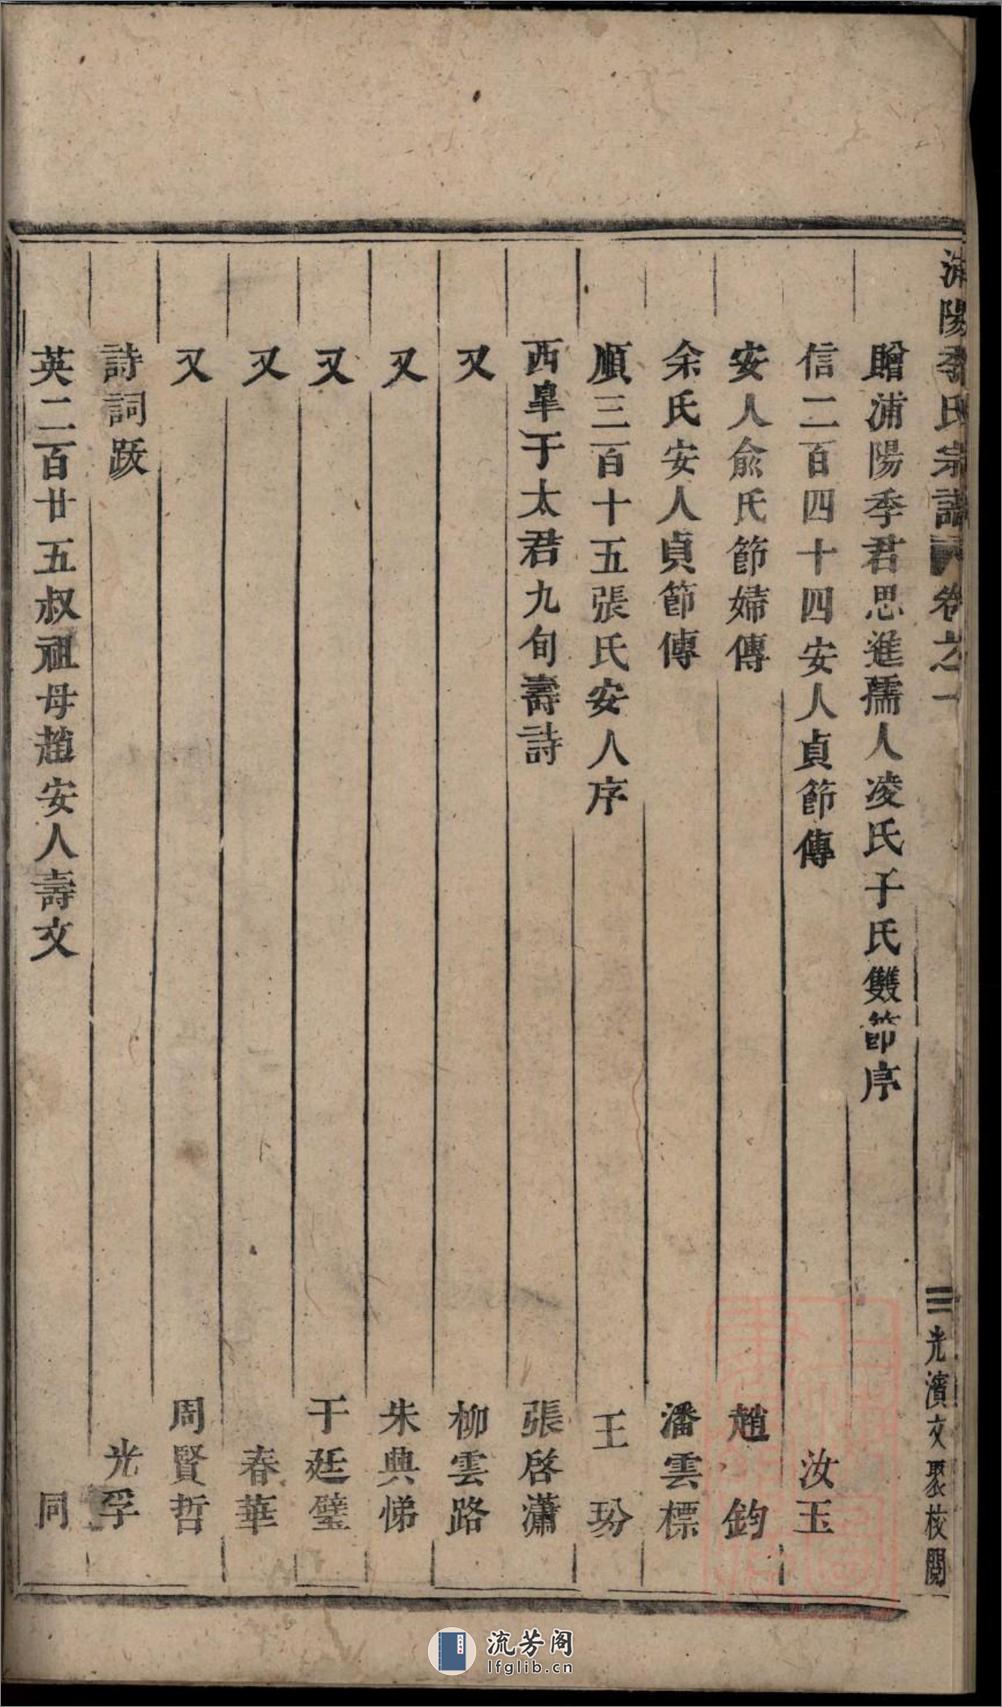 浦陽季氏宗譜 卷之一
贈浦陽季君思進孺人凌氏于氏雙節序
信二百四十四安人貞節傳 汝玉
安人俞氏節婦傳 趙鈞
余氏安人貞節傳 潘雲標
順三百十五張氏安人序 王玢
西皐于太君九旬壽詩 張啓瀟
又 柳雲路
又 朱興悌
又 于廷璧
又 春華
又 周賢哲
詩詞跋 光孚
英二百廿五叔祖母趙安人壽文 同
三 光濱文聚校閱
流芳阁
lfglib.cn